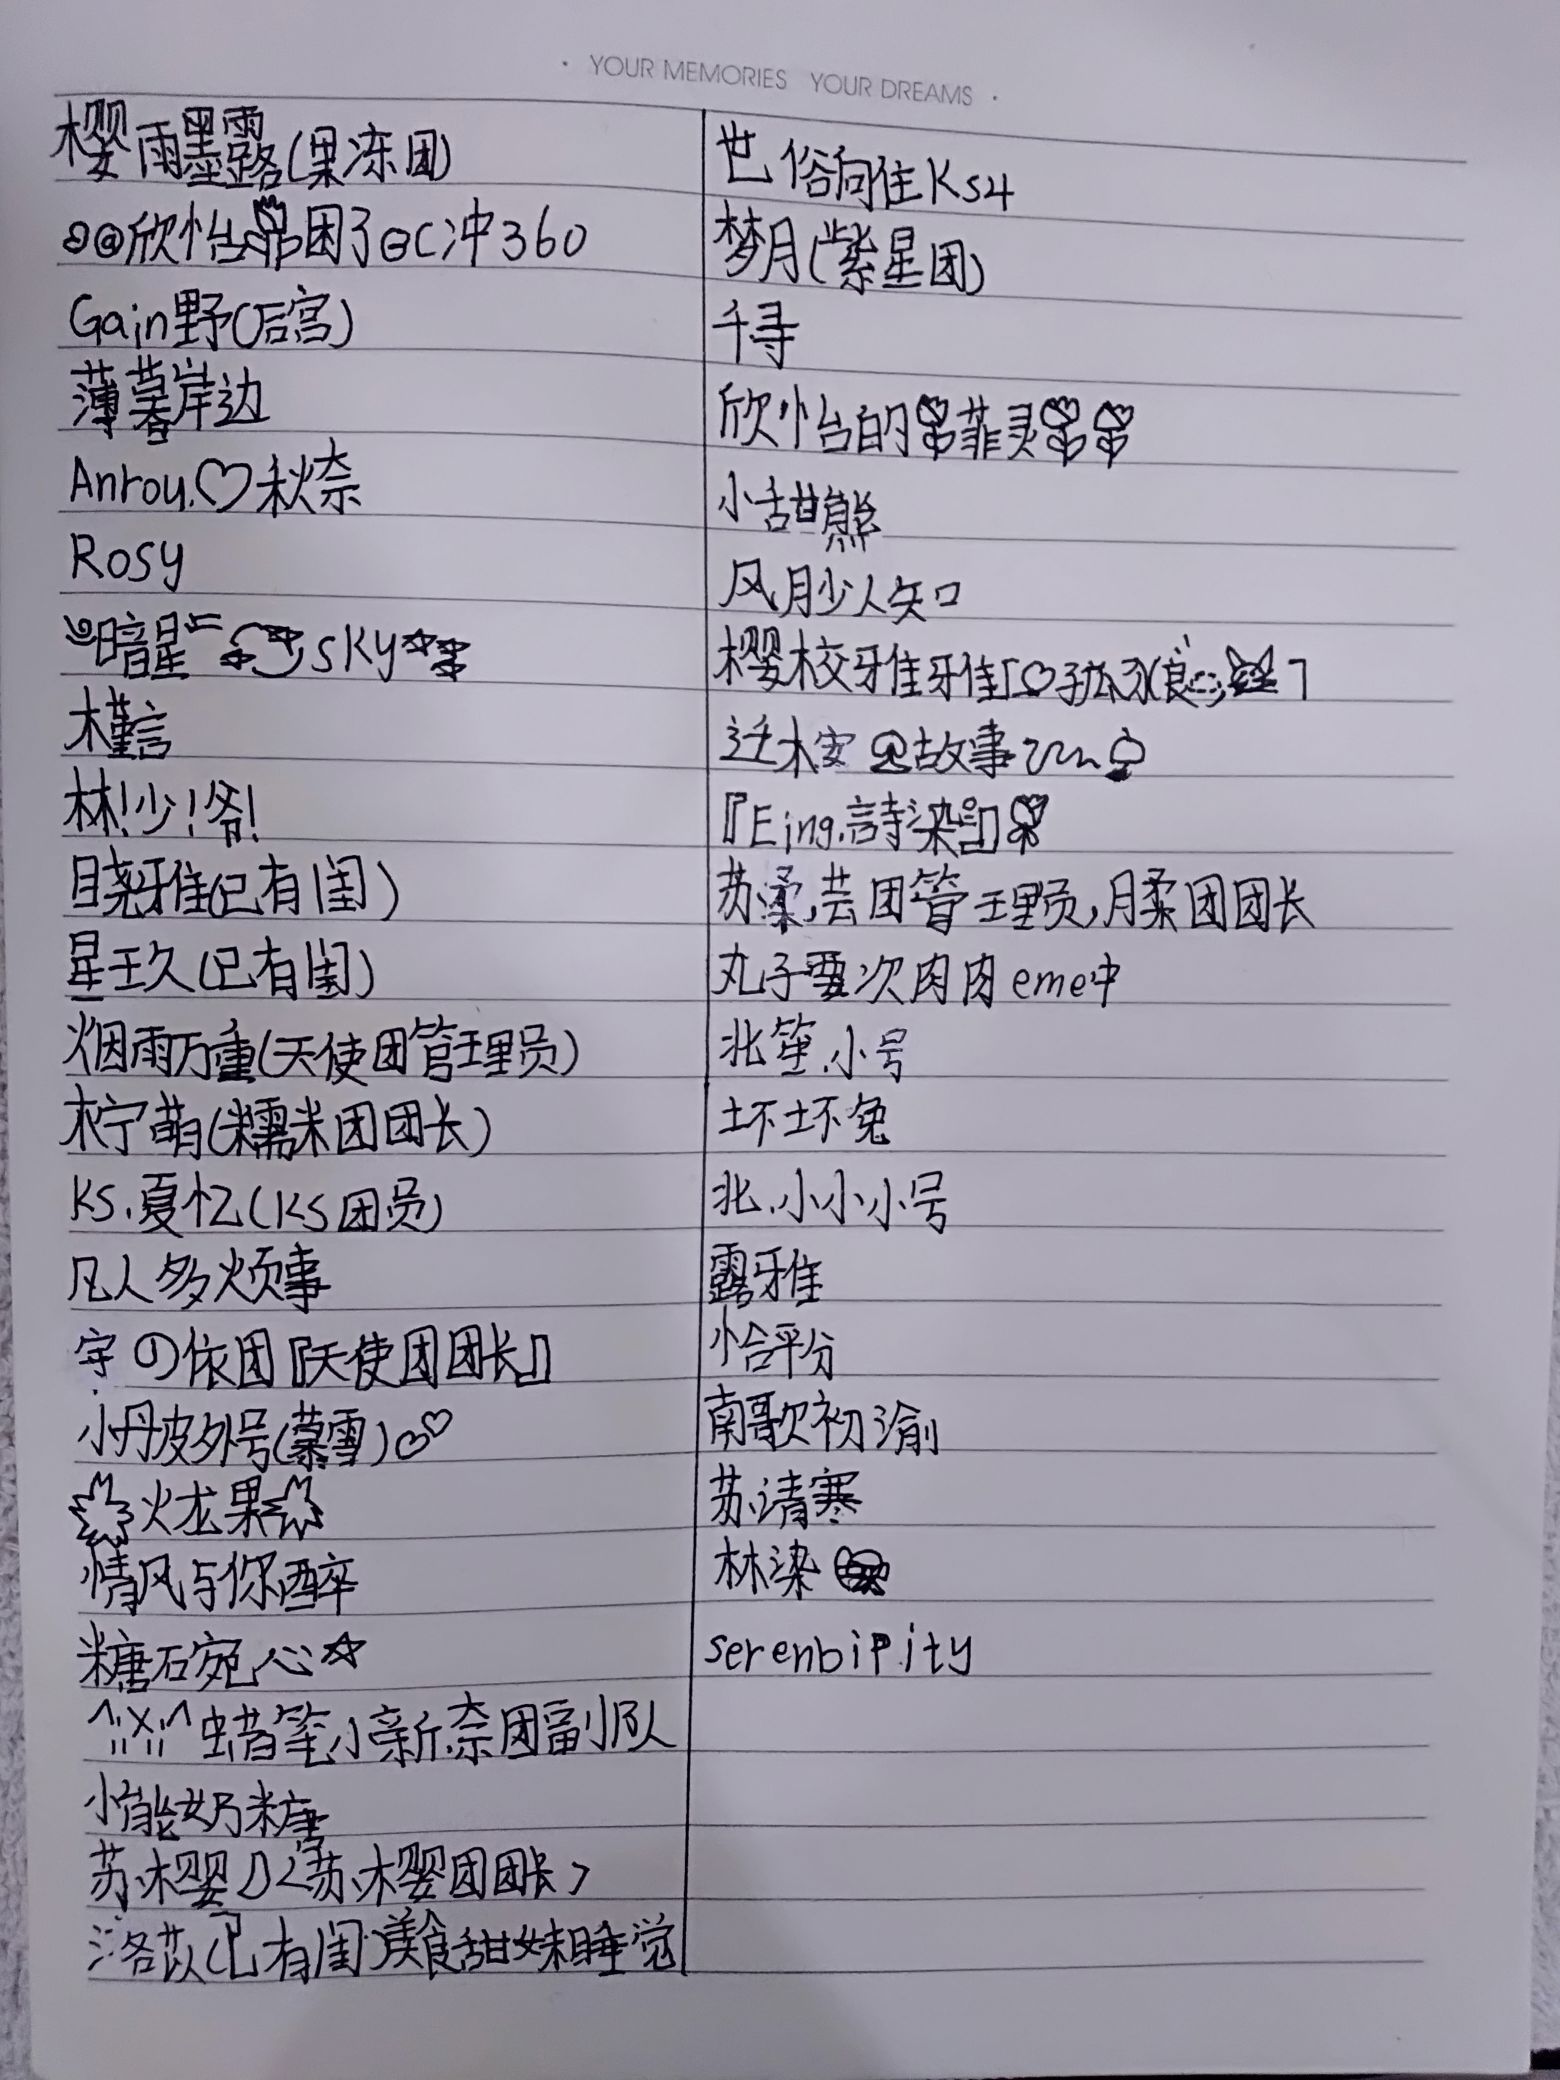 YOUR MEMORIES YOUR DREAMS
樱雨墨露(果冻团)
欣怡困了 冲360
Gain野(后宫)
薄暮岸边
Anrou.♡秋奈
Rosy
暗星 sky
木槿言
林!少!爷!
晓雅(已有闺)
星玖(已有闺)
烟雨万重(天使团管理员)
柠萌(糯米团团长)
KS.夏忆(KS团员)
凡人多烦事
宇の依团『天使团团长』
小丹皮外号(慕雪)
火龙果
情风与你醉
糖石宛心☆
蜡笔小新.奈团副队
小能奶糖
苏樱 <苏樱团团长>
洛苡(已有闺)美食甜妹睡觉
世俗向往Ks4
梦月(紫星团)
千寻
欣怡的 菲灵
小甜熊
风月少人知
樱校雅雅「♡ 」
迁木安 故事
『Eing.詩染』
苏柔,芸团管理员,月柔团团长
丸子要次肉肉eme中
北笙.小号
坏坏兔
北.小小小号
露雅
恰平分
南歌初渝
苏请寒
林染
serenbipity